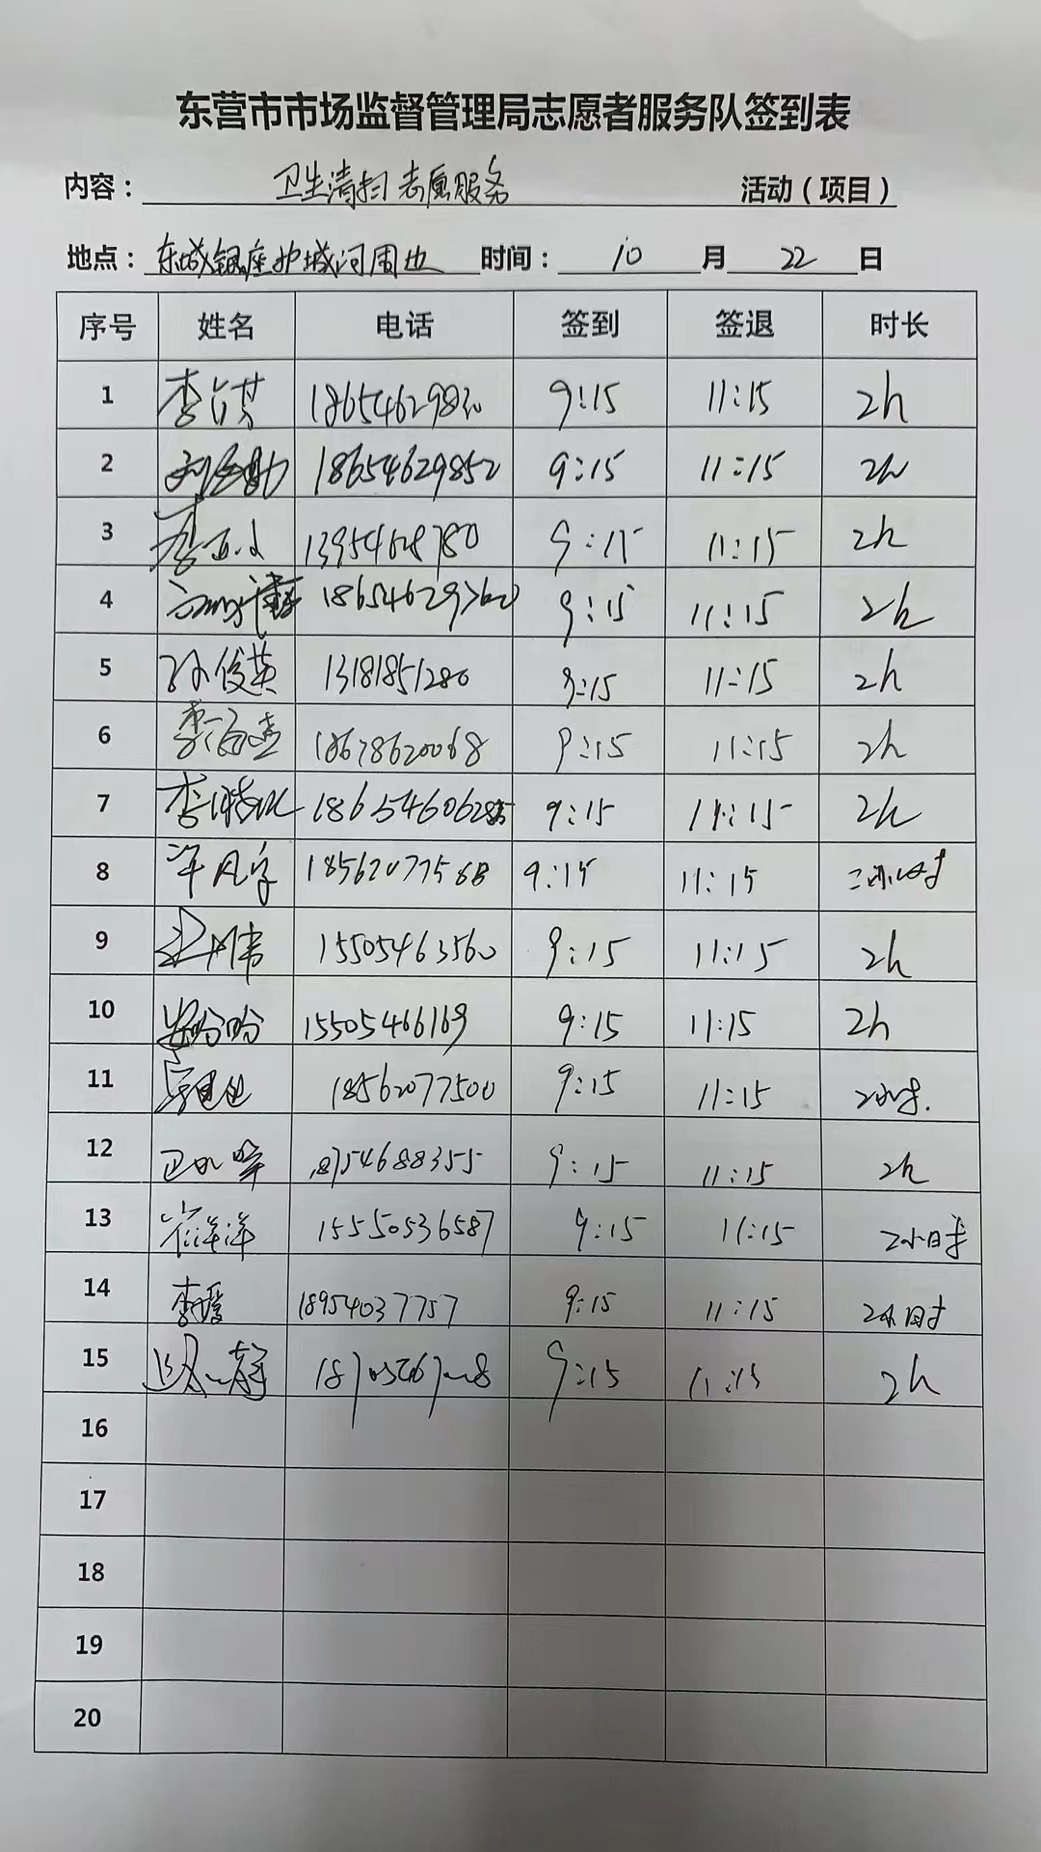 东营市市场监督管理局志愿者服务队签到表
内容： 卫生清扫志愿服务 活动（项目）
地点： 东城银座护城河周边 时间： 10 月 22 日
序号 姓名 电话 签到 签退 时长
1 李 9:15 11:15 2h
2 18654629852 9:15 11:15 2h
3 李 9:15 11:15 2h
4 9:15 11:15 2h
5 孙俊英 13181851280 9:15 11:15 2h
6 李 18678620068 9:15 11:15 2h
7 李 9:15 11:15 2h
8 18562077568 9:15 11:15 二小时
9 15505463560 9:15 11:15 2h
10 安哈哈 15505466169 9:15 11:15 2h
11 18562077500 9:15 11:15 2小时.
12 18754688355 9:15 11:15 2h
13 崔洋洋 15550536587 9:15 11:15 2小时
14 李媛 18954037757 9:15 11:15 2小时
15 9:15 11:15 2h
16
17
18
19
20